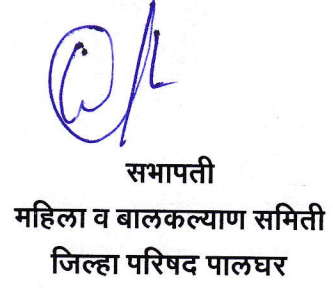 सभापती
महिला व बालकल्याण समिती
जिल्हा परिषद पालघर